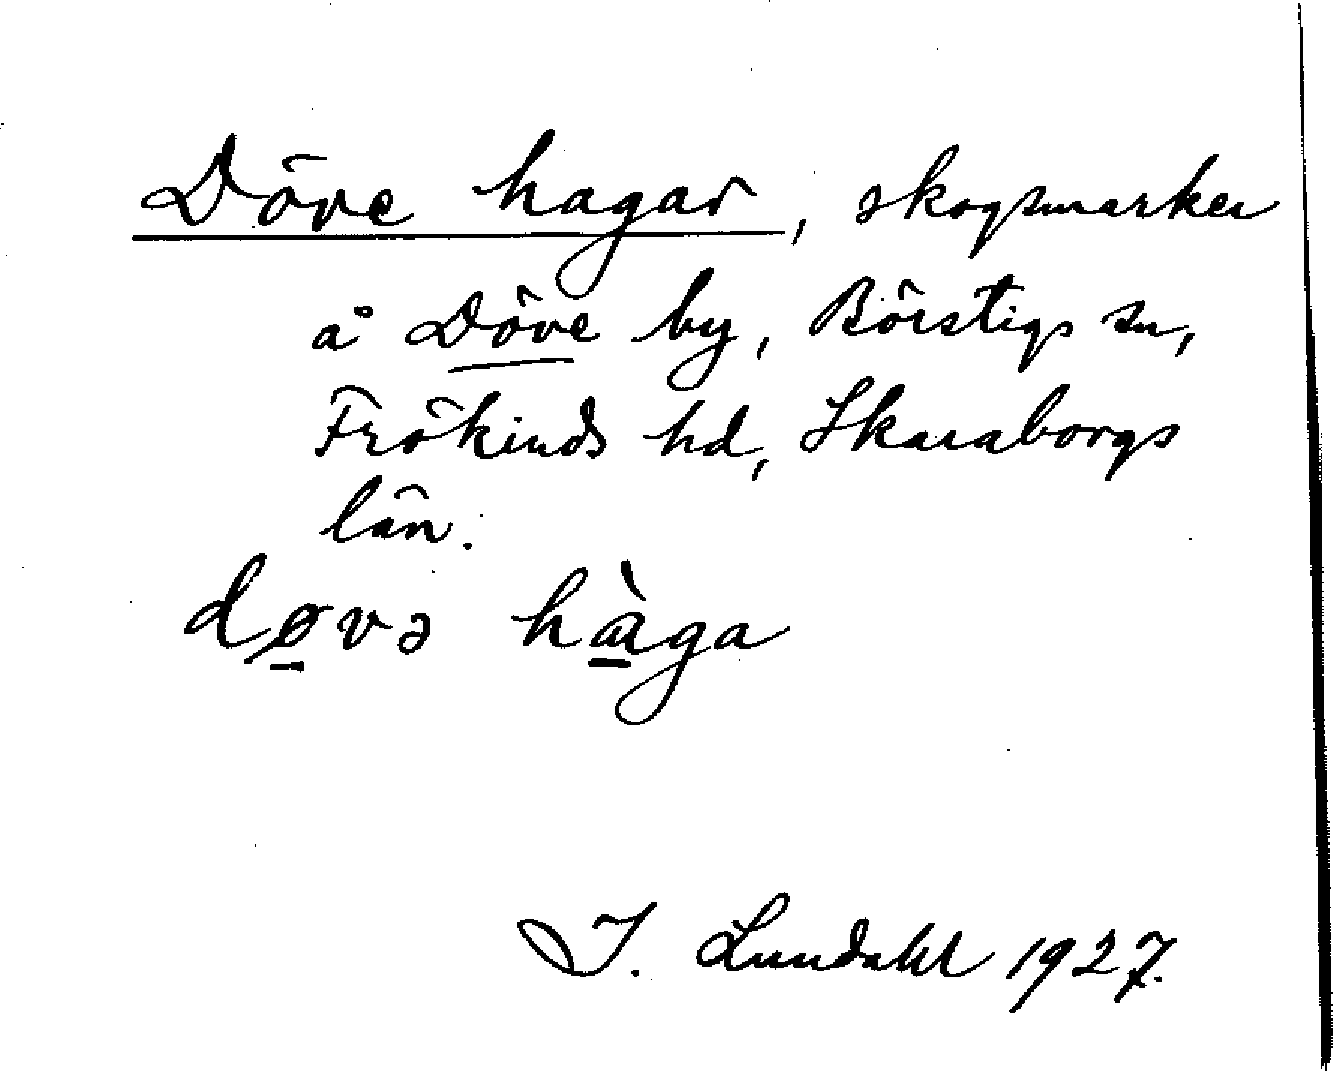 Döve hagar, skogsmarker
å Döve by, Börstigs sn,
Frökinds hd, Skaraborgs
län.
dø̱və hà̱ga
I. Lundahl 1927.